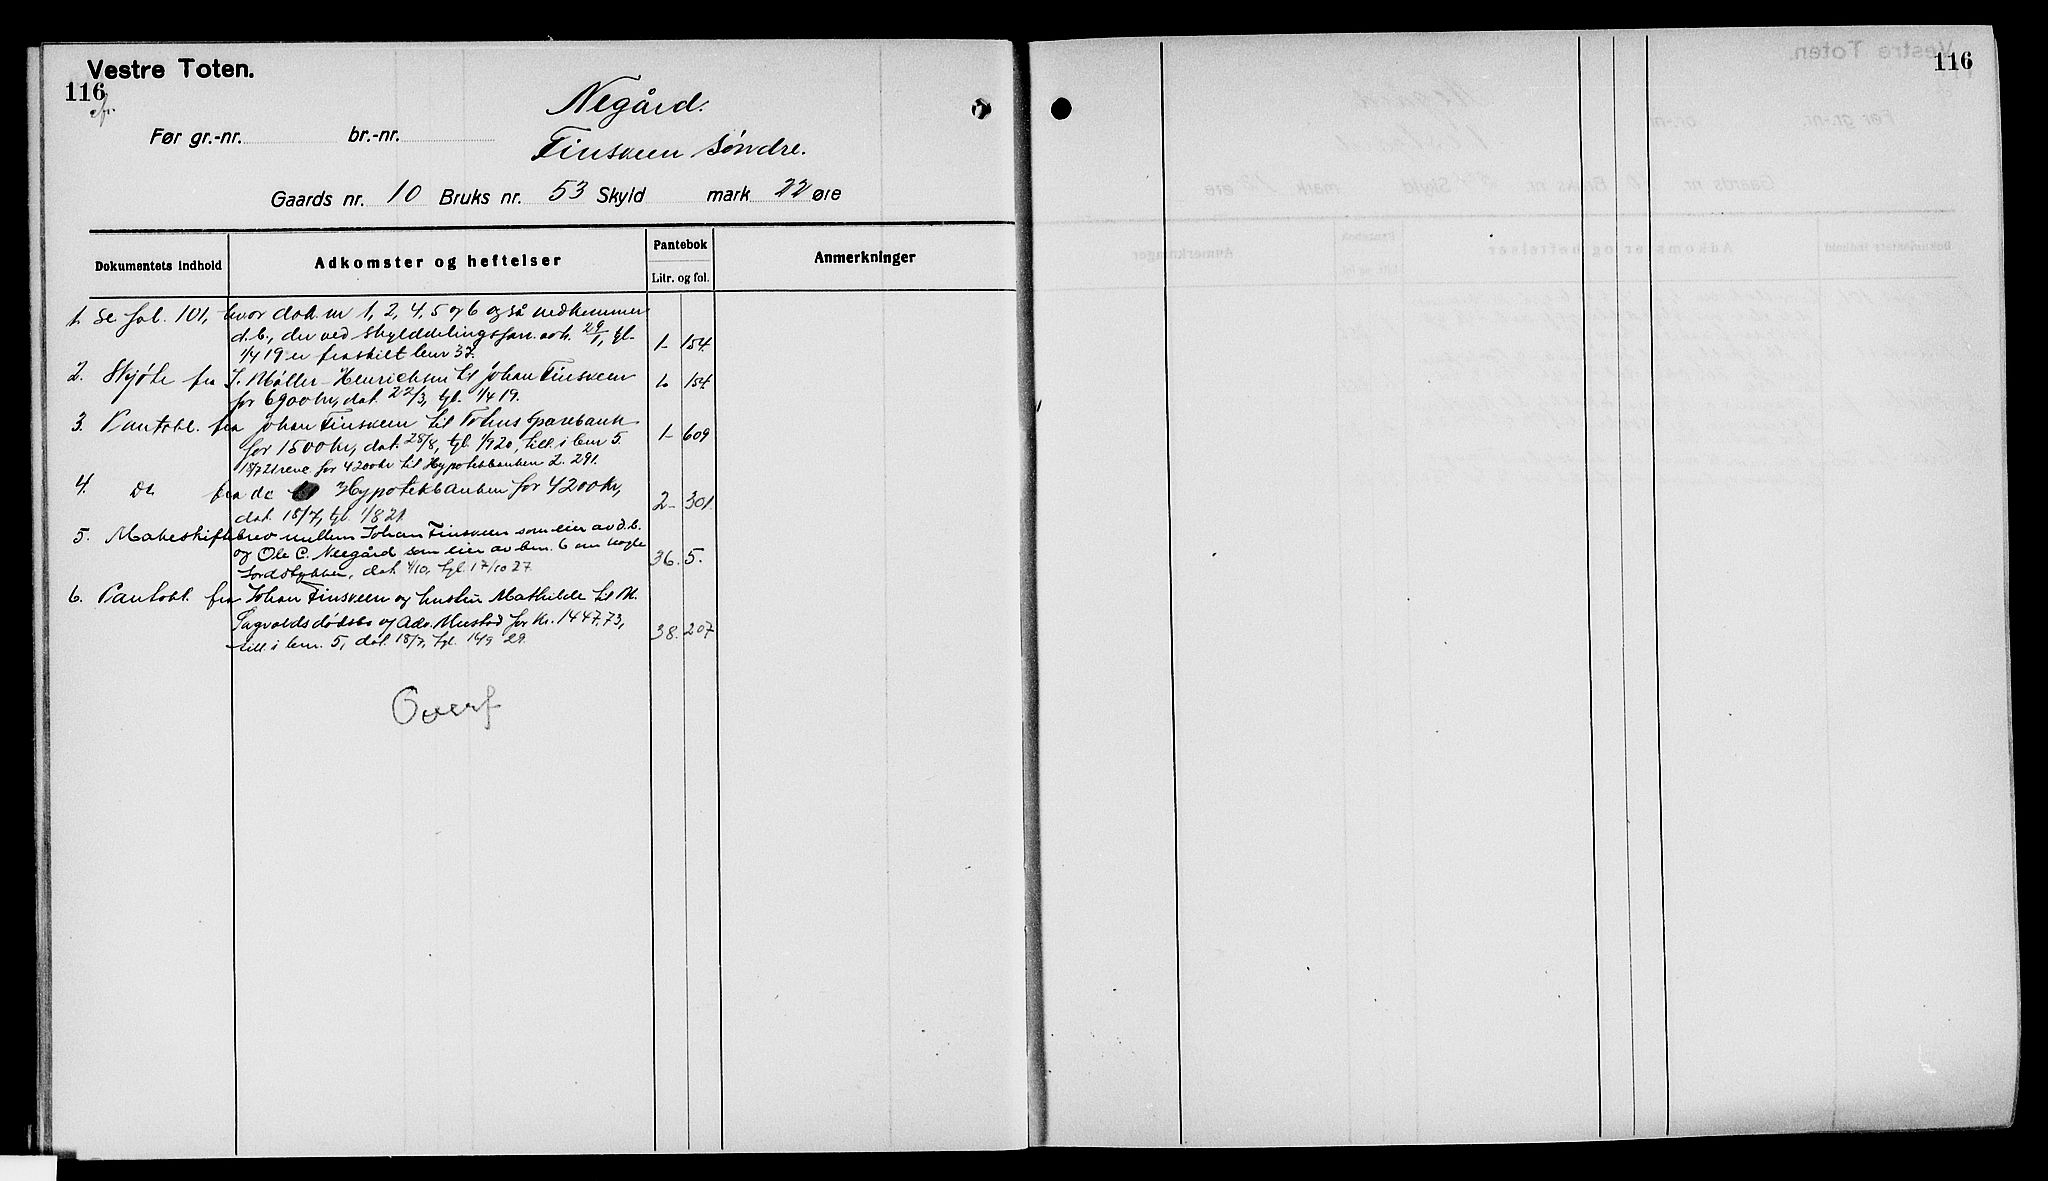 Vestre Toten.
116
Negård.
Før gr.-nr. br.-nr.
Finsveen søndre.
Gaards nr. 10 Bruks nr. 53 Skyld mark 22 øre
Dokumentets indhold Adkomster og heftelser Pantebok Anmerkninger
Litr. og fol.
1. Se fol. 101, hvor dok. nr 1, 2, 4, 5 og 6 også vedkommer
d.b., der ved skylddelingsforr. avh. 29/1, tgl.
1/4 19 er fraskilt bnr 37. 1- 154.
2. Skjøte fra J. Møller-Henrichsen til Johan Finsveen 1- 154
for 6900 kr, dat. 22/3, tgl. 1/4 19.
3. Pantobl. fra Johan Finsveen til Totens Sparebank
for 1500 kr, dat. 28/8, tgl. 1/9 20, till. i bnr 5. 1- 609
18/7 21 for 4200 kr til Hypotekbanken 2. 291.
4. Do fra do Hypotekbanken for 4200 kr,
dat. 18/7, tgl. 1/8 21 2- 301.
5. Makeskiftebrev mellem Johan Finsveen som eier av d.b.
og Ole C. Neegård som eier av bnr. 6 om nogle
jordstykker, dat. 4/10, tgl. 17/10 27. 36. 5.
6. Pantobl. fra Johan Finsveen og hustru Mathilde til M.
dødsbo og Adv. Mustad for kr. 1447,73,
till. i bnr. 5, dat. 18/7, tgl. 16/9 29. 38. 207
Overf
116